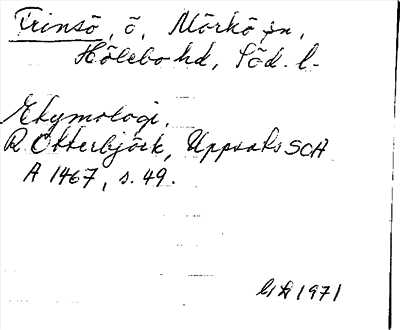 Trinsö, ö, Mörkö sn,
Hölebo hd, Söd. l.
Etymologi.
R Otterbjörk, Uppsats SOA
A 1467, s. 49.
1971